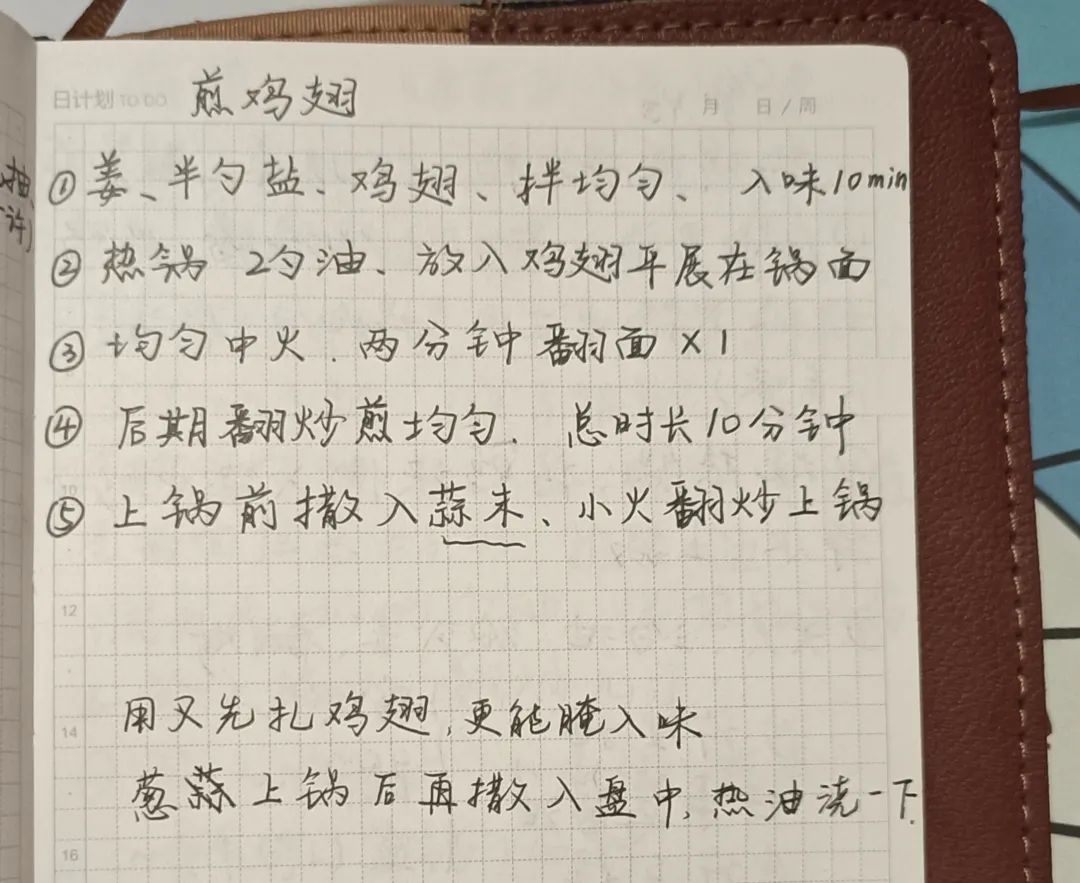 日计划 10:00 煎鸡翅 月 日/周
①姜、半勺盐、鸡翅、拌均匀、入味10min
②热锅 2勺油、放入鸡翅平展在锅面
③均匀中火.两分钟翻面×1
④后期翻炒煎均匀.总时长10分钟
⑤上锅前撒入蒜末、小火翻炒上锅
12
用叉先扎鸡翅,更能腌入味
14
葱蒜上锅后再撒入盘中,热油浇一下.
16